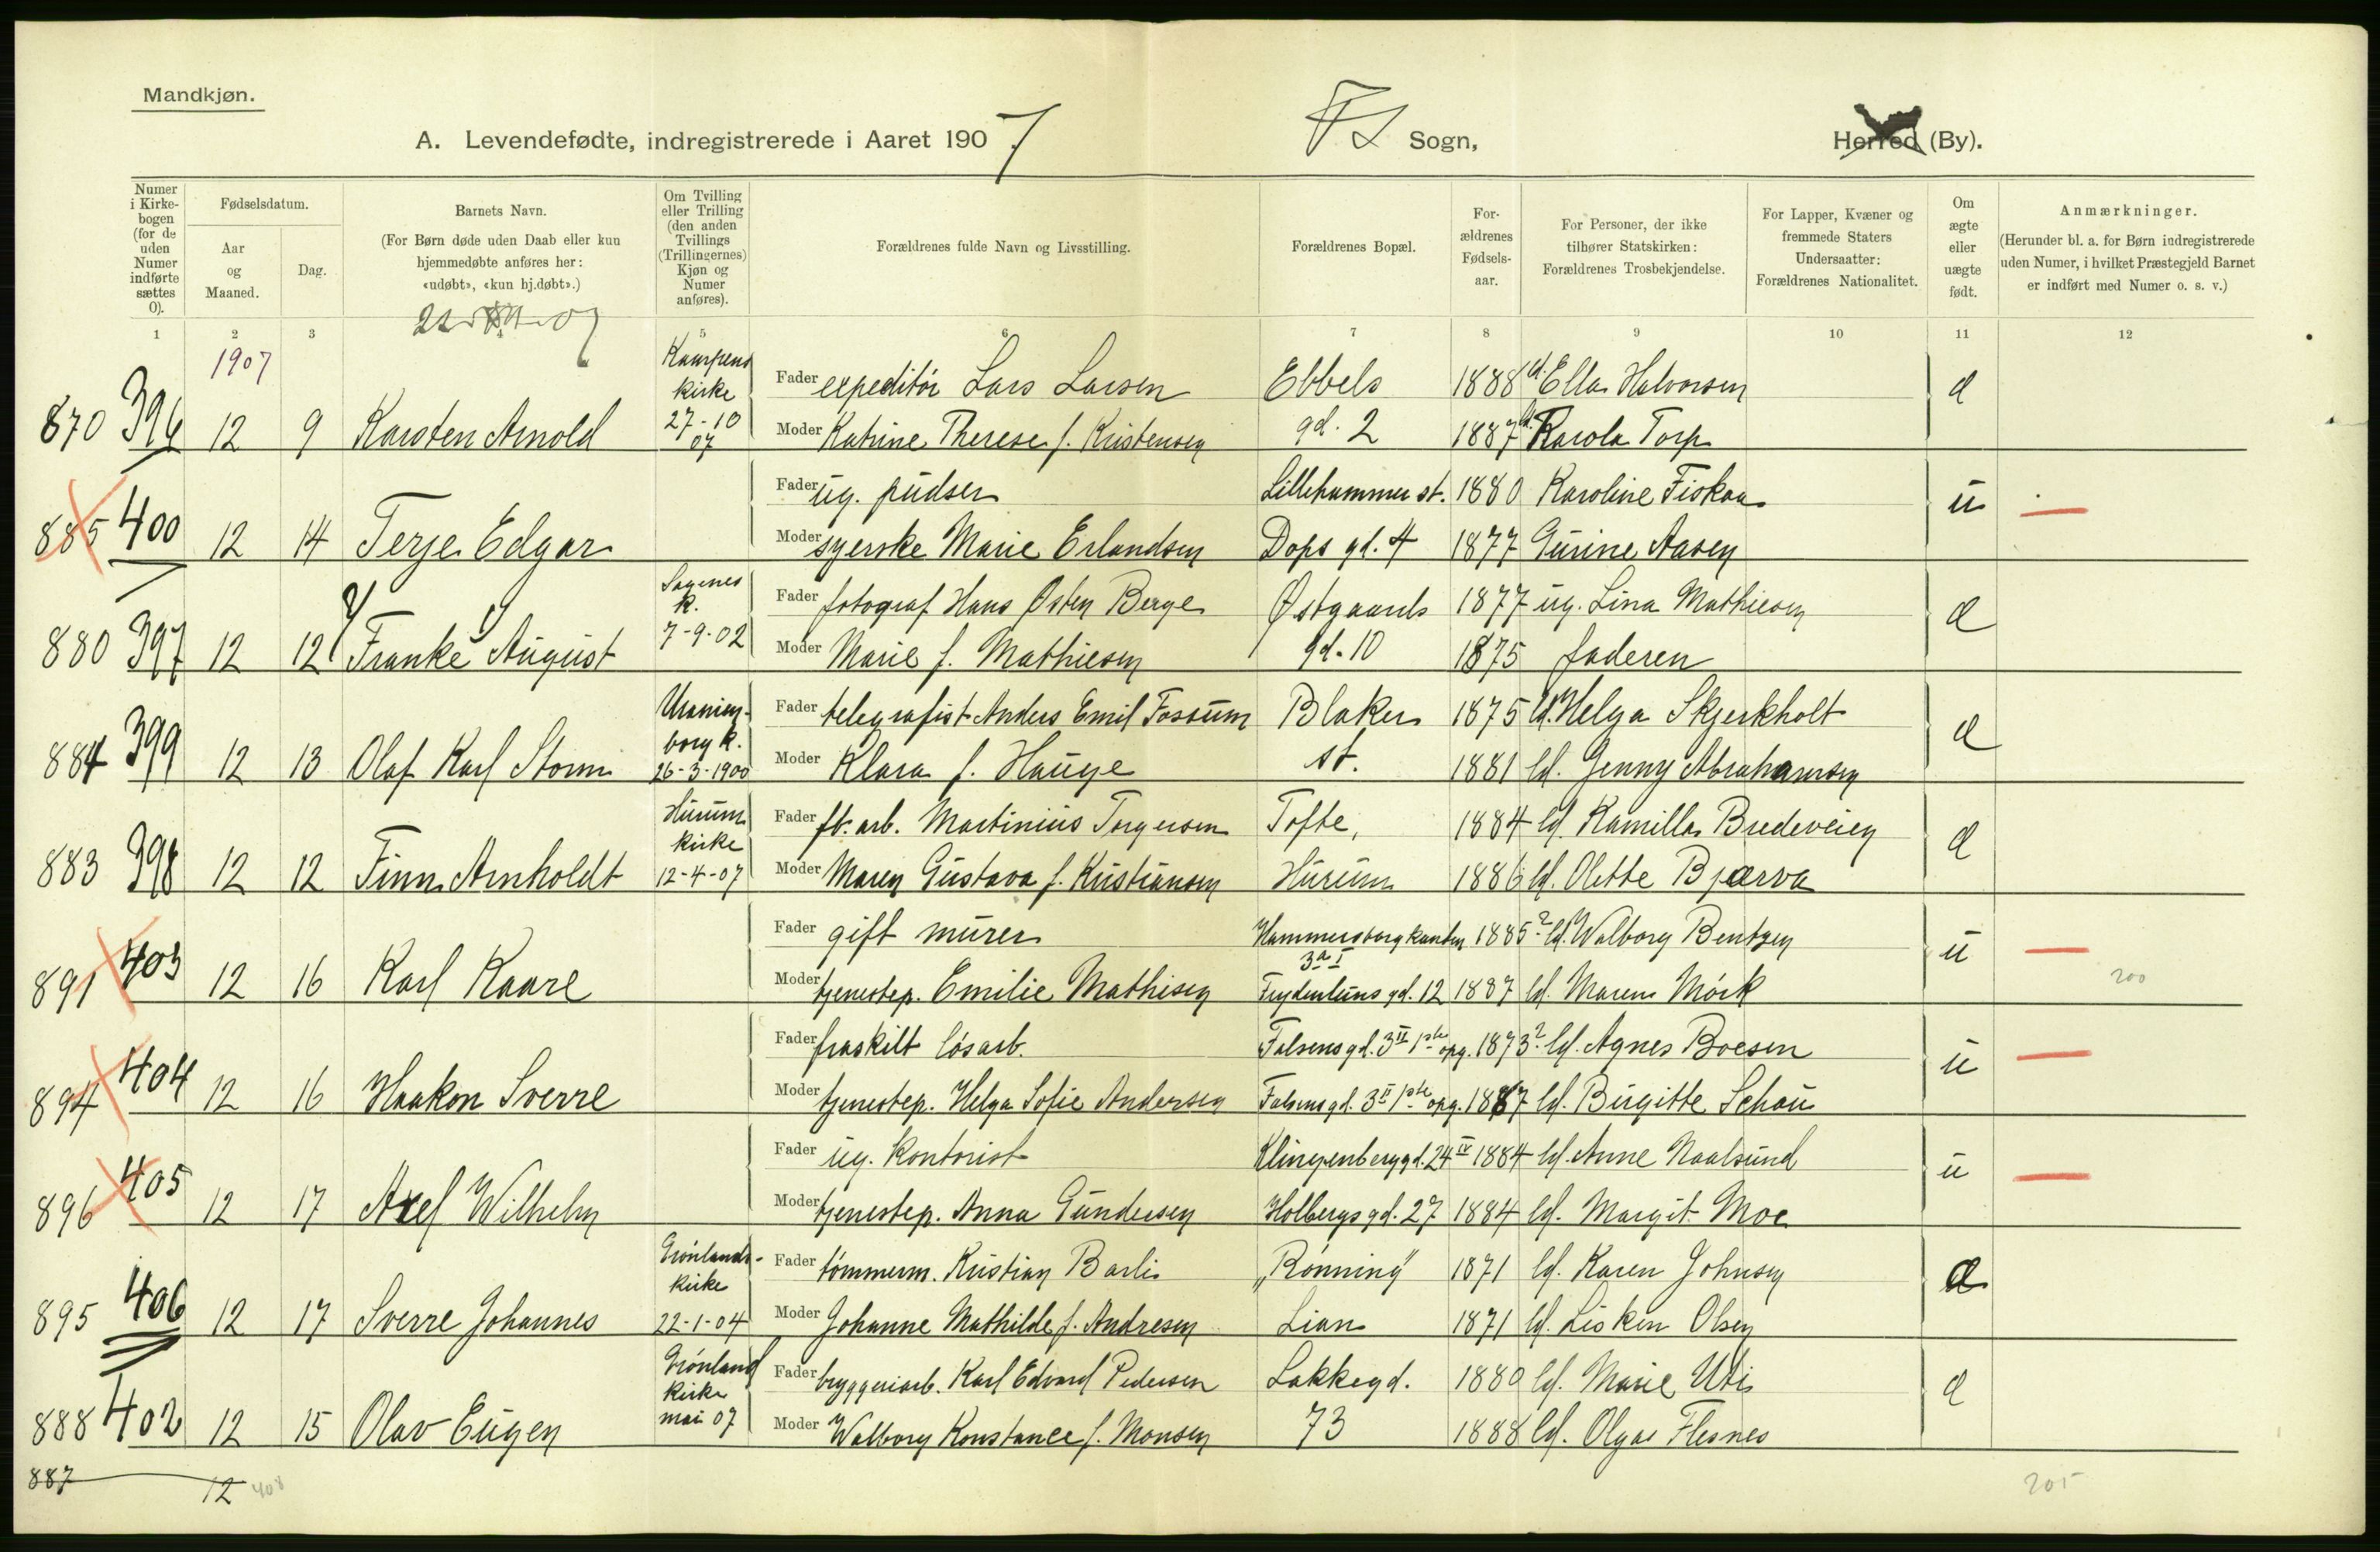 Mandkjøn.
A. Levendefødte, indregistrerede i Aaret 1907. Fs Sogn, Herred (By).
Numer i Kirkebogen (for de uden Numer indførte sættes 0).
Fødselsdatum.
Aar og Maaned.
Dag.
Barnets Navn.
(For Børn døde uden Daab eller kun hjemmedøbte anføres her: «udøbt», «kun hj.døbt».)
Om Tvilling eller Trilling (den anden Tvillings (Trillingernes) Kjøn og Numer anføres).
Forældrenes fulde Navn og Livsstilling.
Forældrenes Bopæl.
Forældrenes Fødselsaar.
For Personer, der ikke tilhører Statskirken: Forældrenes Trosbekjendelse.
For Lapper, Kvæner og fremmede Staters Undersaatter: Forældrenes Nationalitet.
Om ægte eller uægte født.
Anmærkninger.
(Herunder bl. a. for Børn indregistrerede uden Numer, i hvilket Præstegjeld Barnet er indført med Numer o. s. v.)
1 2 3 4 5 6 7 8 9 10 11 12
1907
Kampens kirke Fader expeditör Lars Larsen Ebbels 1888 Ella Halvorsen æ
870 396 12 9 Karsten Arnold 27-10 07 Moder Katrine Therese f. Kristensen gd. 2 1887 Karola Torp
Fader ug. pudser Lillehammer st. 1880 Karoline Fiskaa u
885 400 12 14 Terje Edgar Moder syerske Marie Erlandsen Dops gd. 4 1877 Gurine Aasen
Sagenes k. Fader fotograf Hans Østen Berge Østgaards 1877 ug. Lina Mathiesen æ
880 397 12 12 Franke August 7-9-02 Moder Marie f. Mathiesen gd. 10 1875 faderen
Uranienborg k. Fader telegrafist Anders Emil Fossum Blaker 1875 Helga Skjerkholt æ
884 399 12 13 Olaf Karl Storm 26-3-1900 Moder Klara f. Hauge st. 1881 Jenny Abrahamsen
Hurum kirke Fader fb. arb. Martinius Torgersen Tofte, 1884 Kamilla Bredeveien æ
883 398 12 12 Finn Arnholdt 12-4-07 Moder Maren Gustava f. Kristiansen Hurum 1886 Olette Bjærva
Fader gift murer Hammersborgkanten 3 a I 1885? Walborg Bentzen u
891 403 12 16 Karl Kaare Moder tjenestep. Emilie Mathisen Frydenluns gd. 12 1887 Maren Mörk
200
Fader fraskilt lösarb. Falsens gd. 3 II 1ste opg. 1873? Agnes Boesen u
894 404 12 16 Haakon Sverre Moder tjenestep. Helga Sofie Andersen Falsens gd. 3 II 1ste opg. 1887 Birgitte Schou
Fader ug. kontorist Klingenberg gd. 24 IV 1884 Anne Naalsund u
896 405 12 17 Axel Wilhelm Moder tjenestep. Anna Gundersen Holbergs gd. 27 1884 Margit Moe
Grönlands-kirke Fader tömmerm. Kristian Barli "Rönning" 1871 Karen Johnsen æ
895 406 12 17 Sverre Johannes 22-1-04 Moder Johanne Mathilde f. Andresen Lian 1871 Lisken Olsen
Grönland kirke Fader bryggeriarb. Karl Edvard Pedersen Lakkegd. 1880 Marie Uti æ
888 402 12 15 Olav Eugen mai 07 Moder Walborg Konstance f. Monsen 73 1888 Olga Flesnes
887 12 408 205